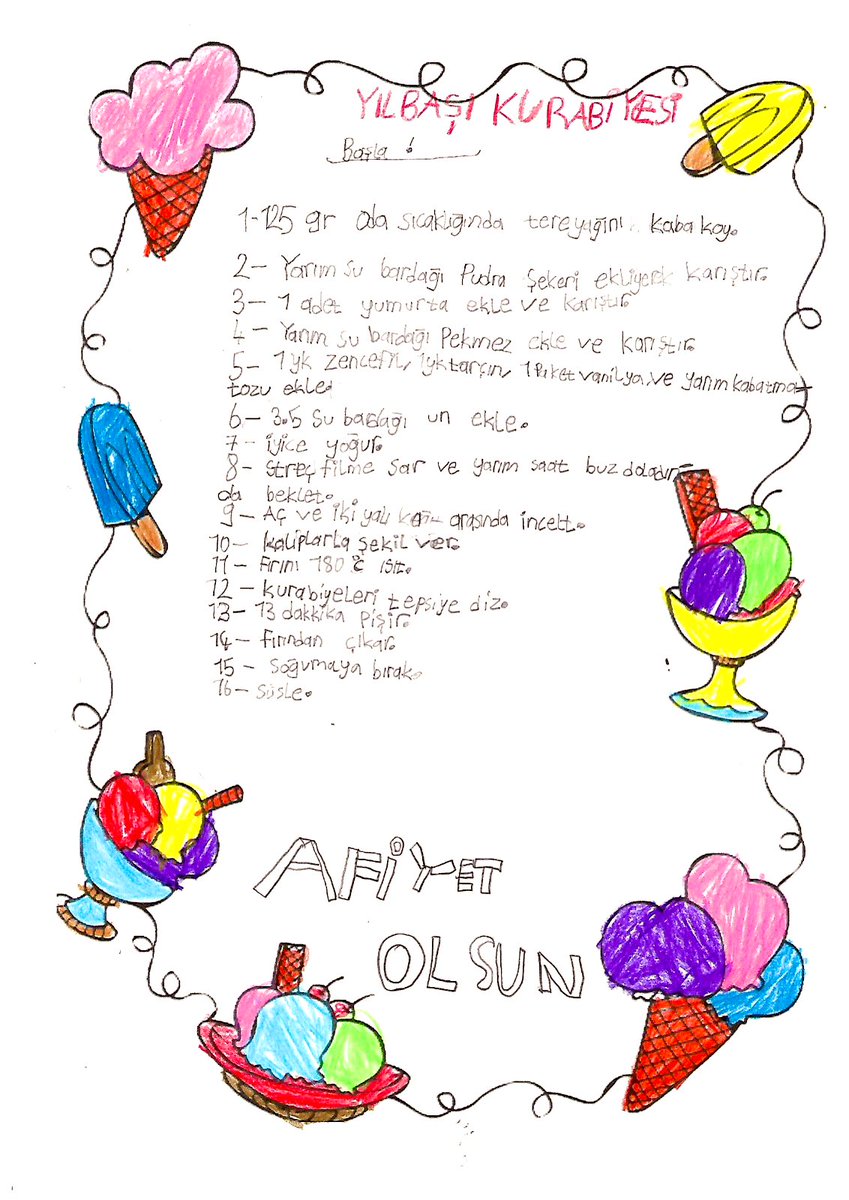 YILBAŞI KURABİYESİ
Başla !
1-125 gr oda sıcaklığında tereyağını kaba koy.
2- Yarım su bardağı Pudra Şekeri ekliyerek karıştır.
3- 1 adet yumurta ekle ve karıştır.
4- Yarım su bardağı Pekmez ekle ve karıştır.
5- 1yk zencefil, 1yktarçın, 1 Paket vanilya, ve yarım kabatma
tozu ekle.
6- 3.5 Su bardağı un ekle.
7- iyice yoğur.
8- Streç filme sar ve yarım saat buz
da beklet.
9- Aç ve iki arasında incelt.
10- kalıplarla şekil ver.
11- Fırını 180°C ısıt.
12- kurabiyeleri tepsiye diz.
13- 13 dakkika pişir.
14- fırından çıkar.
15- Soğumaya bırak.
16- Süsle.
AFİYET
OLSUN